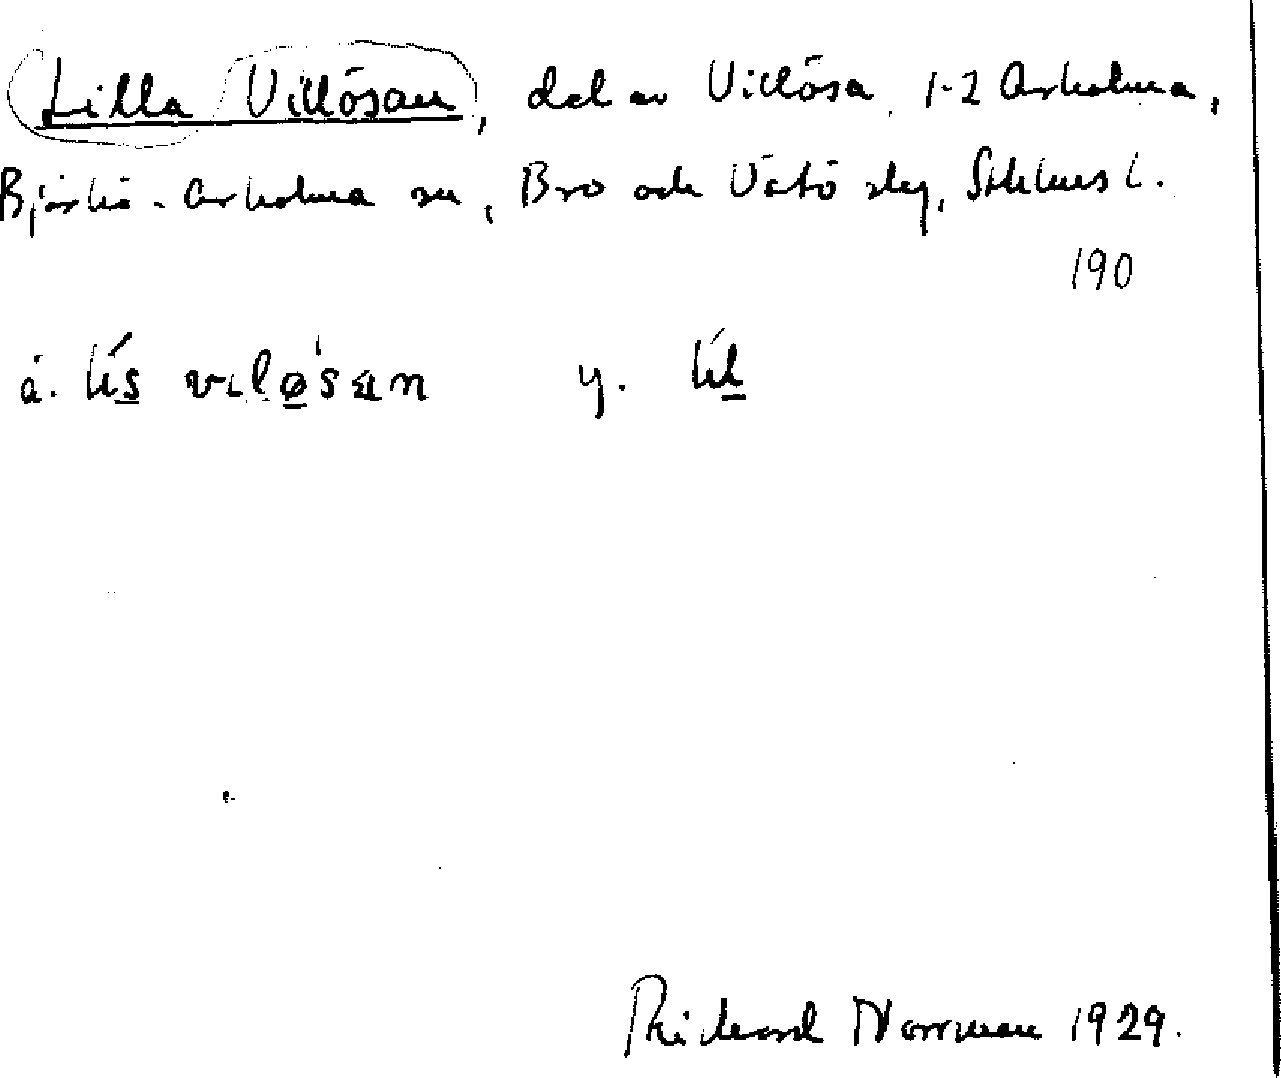 Lilla Villösan, del av Villösa 1-2 Arholma,
Björkö-Arholma sn, Bro och Vätö skg, Sthlms l.
190
ä. lís viløsan y. líl
Richard Norrman 1929.